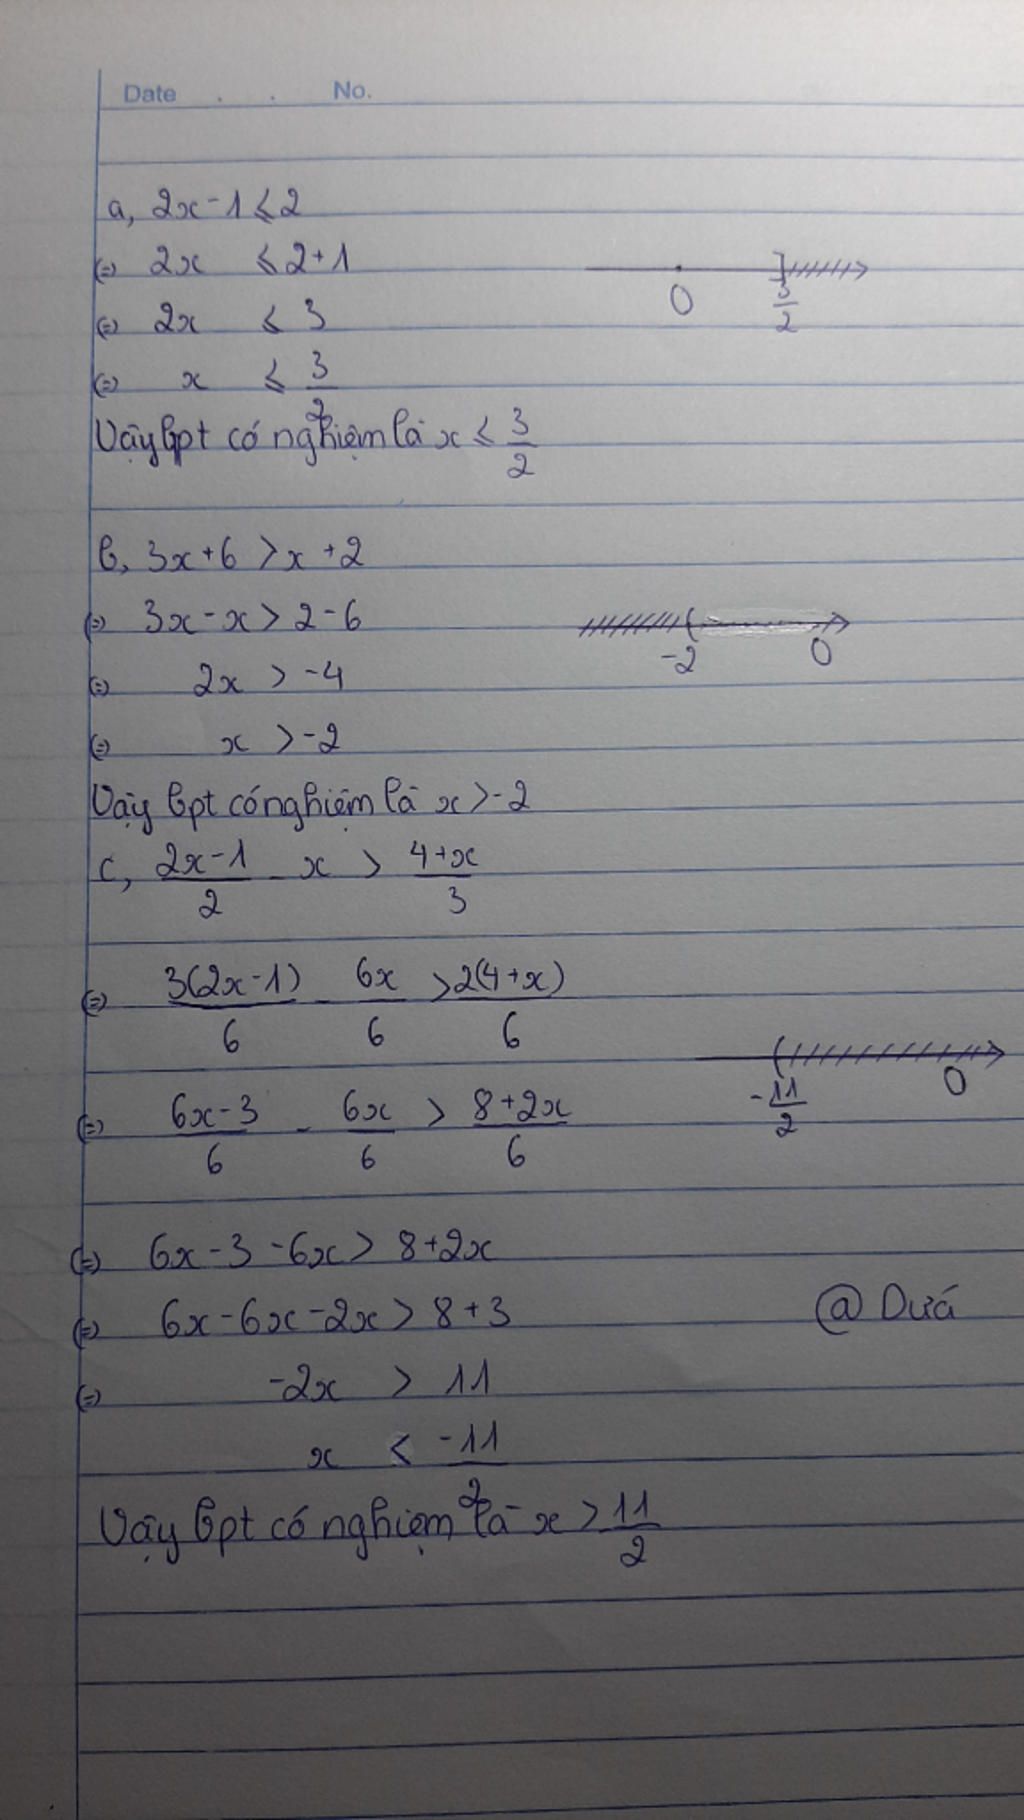 Date . . No.
a, 2x-1 ≤ 2
(=) 2x ≤ 2+1
(=) 2x ≤ 3
(=) x ≤ 3/2
Vậy bpt có nghiệm là x ≤ 3/2
0 3/2
b, 3x+6 > x+2
(=) 3x-x > 2-6
(=) 2x > -4
(=) x > -2
Vậy bpt có nghiệm là x > -2
-2 0
c, (2x-1)/2 - x > (4+x)/3
(=) 3(2x-1)/6 - 6x/6 > 2(4+x)/6
(=) (6x-3)/6 - 6x/6 > (8+2x)/6
-11/2 0
(=) 6x-3-6x > 8+2x
(=) 6x-6x-2x > 8+3
(=) -2x > 11
x < -11/2
Vậy bpt có nghiệm là x > 11/2
@ Dưá